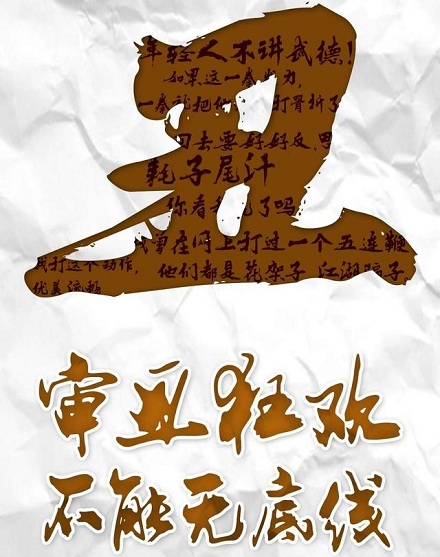 丑
年轻人不讲武德!
如果这一拳发力,
一拳就把他 打骨折了
回去要好好反思
耗子尾汁
你看我 了吗
我曾在网上打过一个五连鞭
我打这个动作, 他们都是花架子 江湖骗子
优美流畅
审丑狂欢
不能无底线